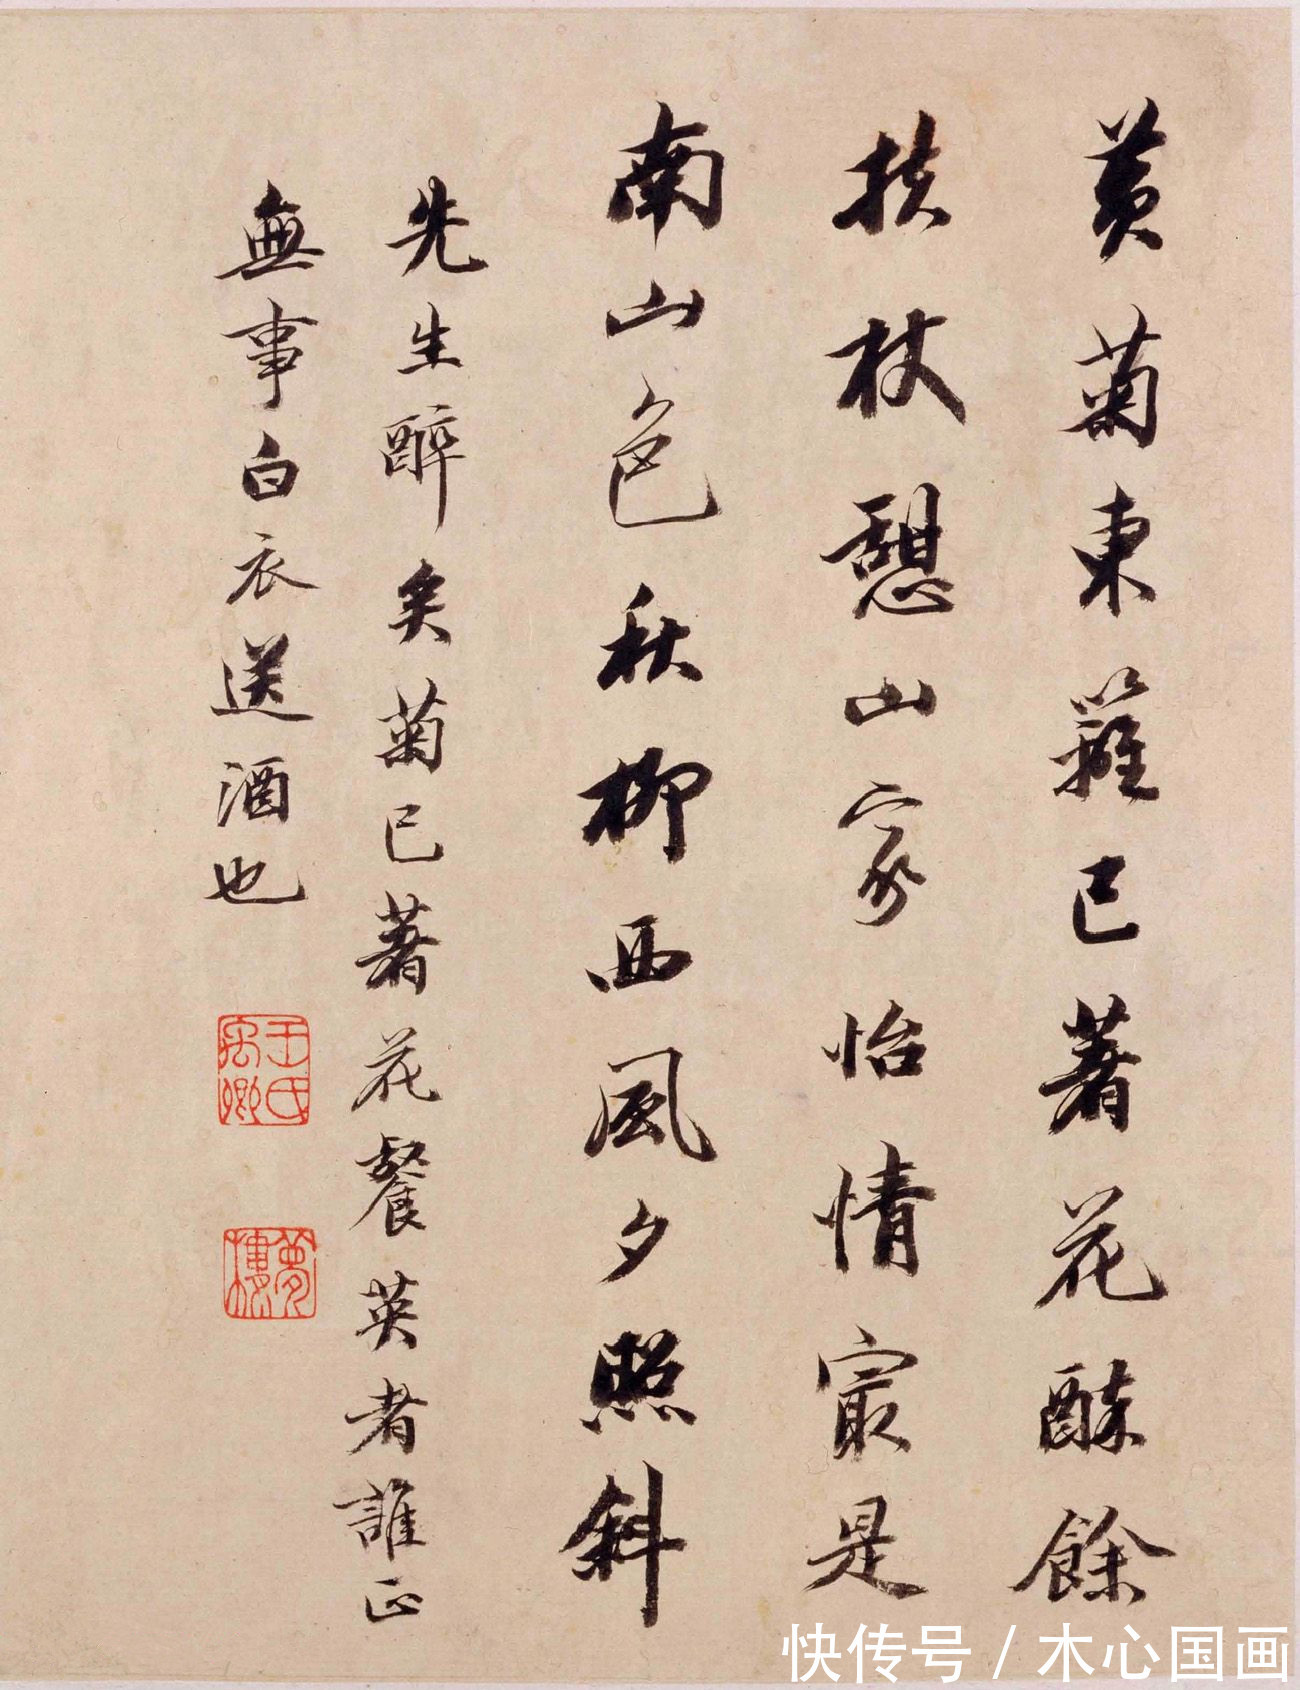 黄菊東籬已著花酥餘
扶杖憩山家怡情寂是
南山色秋柳西風夕照斜
先生醉矣菊已著花餐英者誰正
無事白衣送酒也
王氏禹卿
夢樓
快传号 / 木心国画